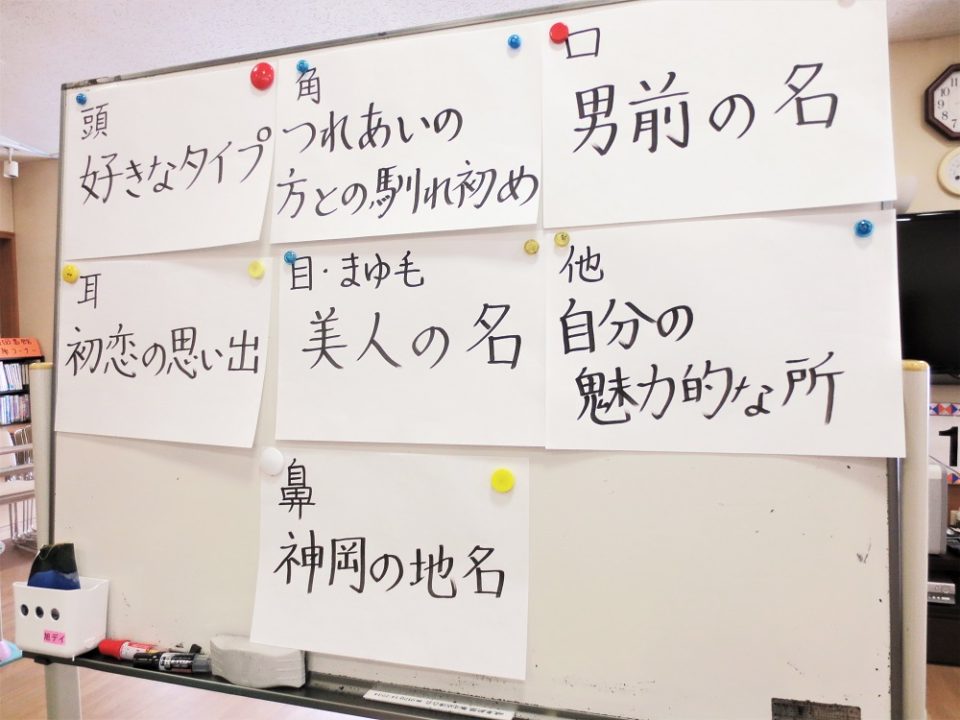 頭
好きなタイプ
角
つれあいの
方との馴れ初め
口
男前の名
耳
初恋の思い出
目・まゆ毛
美人の名
他
自分の
魅力的な所
鼻
神岡の地名
旭デイ